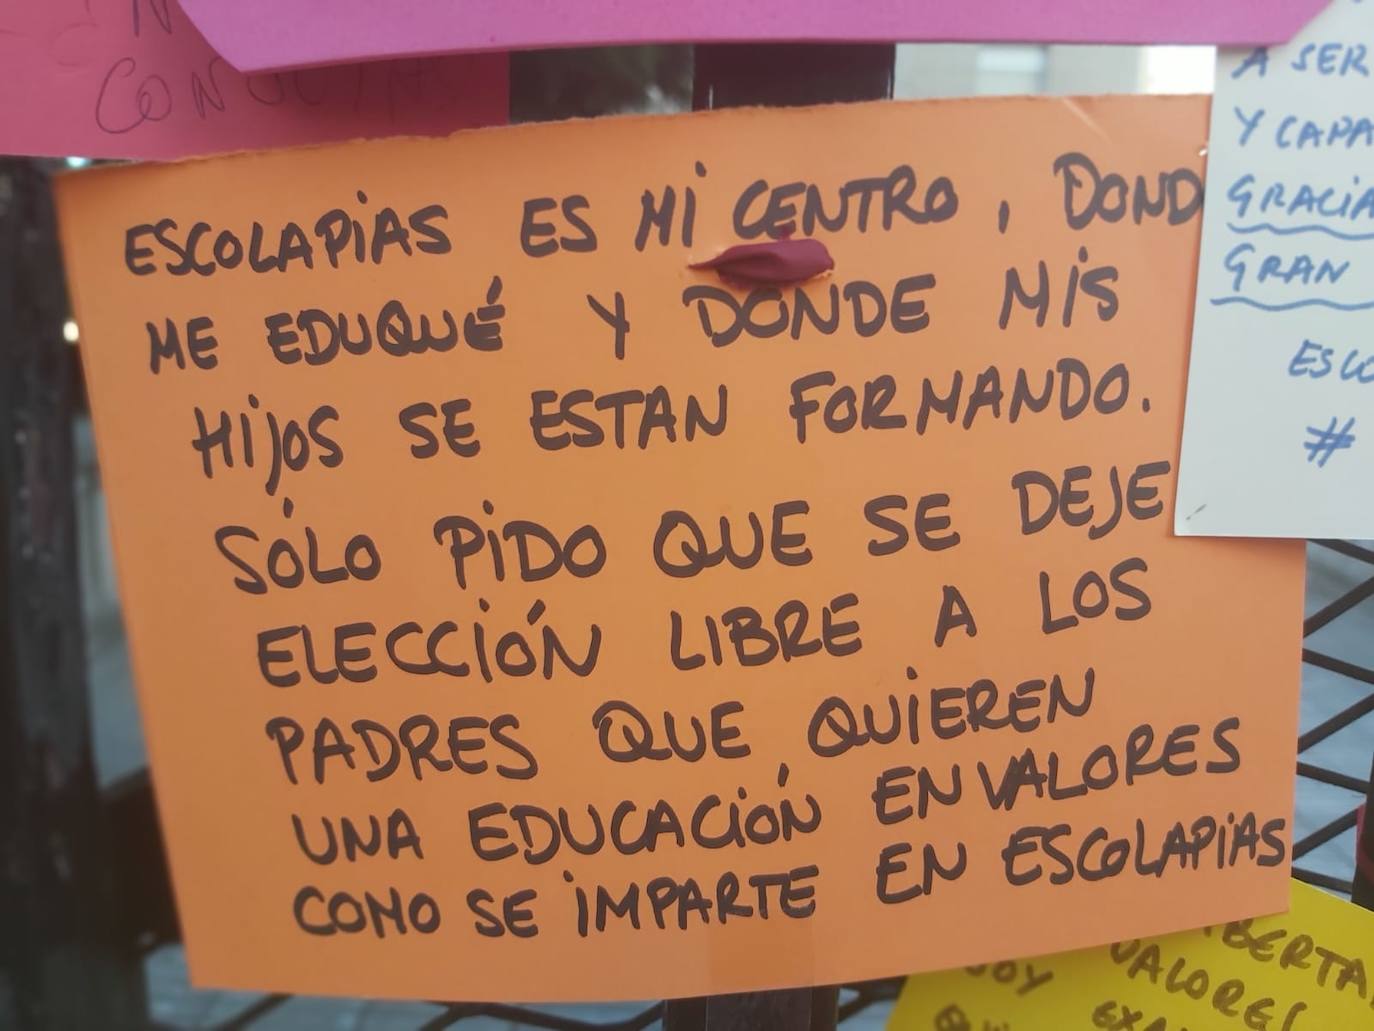 CONJUNTAS
ESCOLAPIAS ES MI CENTRO, DOND
ME EDUQUÉ Y DONDE MIS
HIJOS SE ESTAN FORMANDO.
SÓLO PIDO QUE SE DEJE
ELECCIÓN LIBRE A LOS
PADRES QUE QUIEREN
UNA EDUCACIÓN EN VALORES
COMO SE IMPARTE EN ESCOLAPIAS
A SER
Y CAPA
GRACIA
GRAN
ESCO
#
IBERTA
VALORES
SOY
EXA